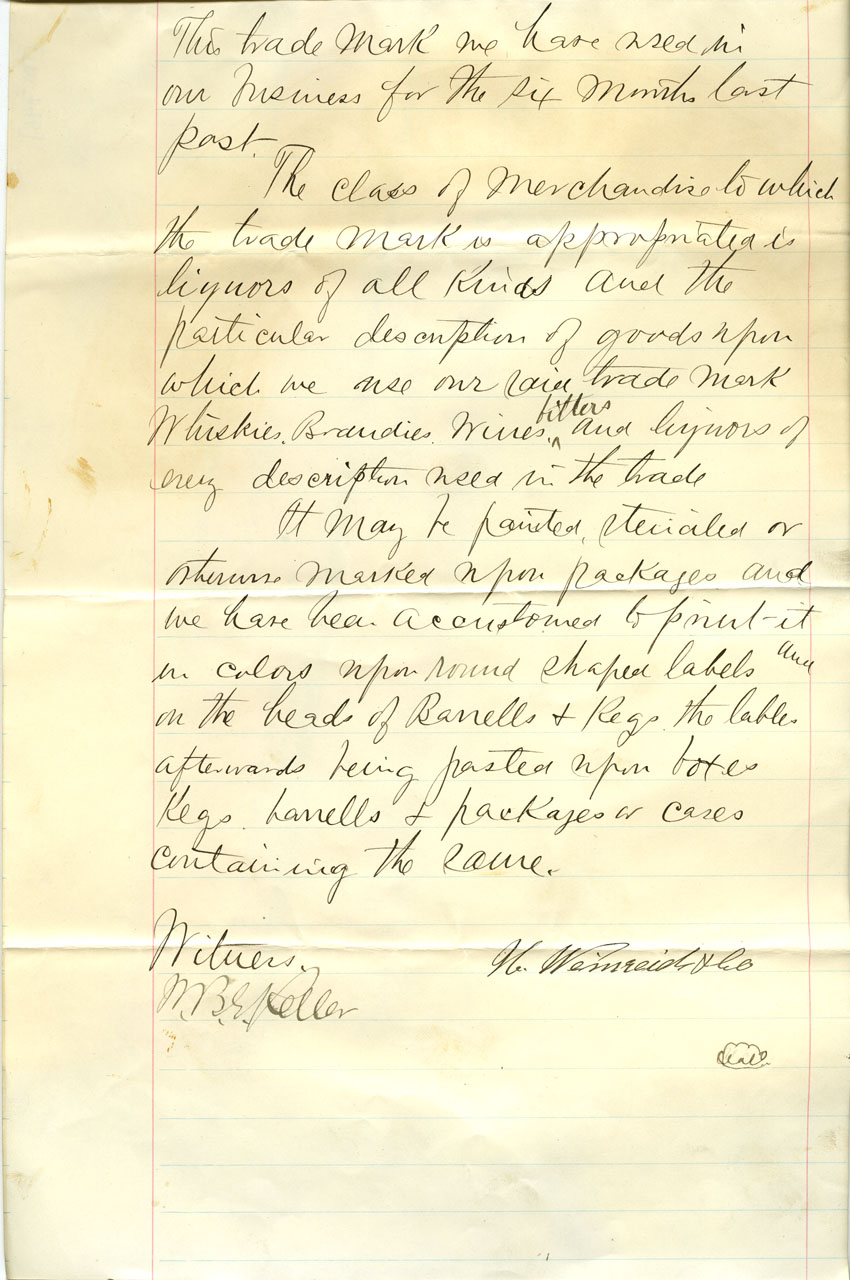 This trade Mark we have used in
our business for the six Months last
past.
The class of Merchandise to which
the trade Mark is appropriated is
liquors of all Kinds and the
particular description of goods upon
which we use our said trade Mark
bitters
Whiskies. Brandies. Wines. ^ and liquors of
every description used in the trade
It May be painted, stenciled or
otherwise Marked upon packages and
we have been accustomed to print it
in colors upon round shaped labels and
on the heads of Barrells & Kegs the lables
afterwards being pasted upon boxes
Kegs. barrells & packages or cases
containing the same.
Witness.
H. & Co
W.B.E. Keller
Seal